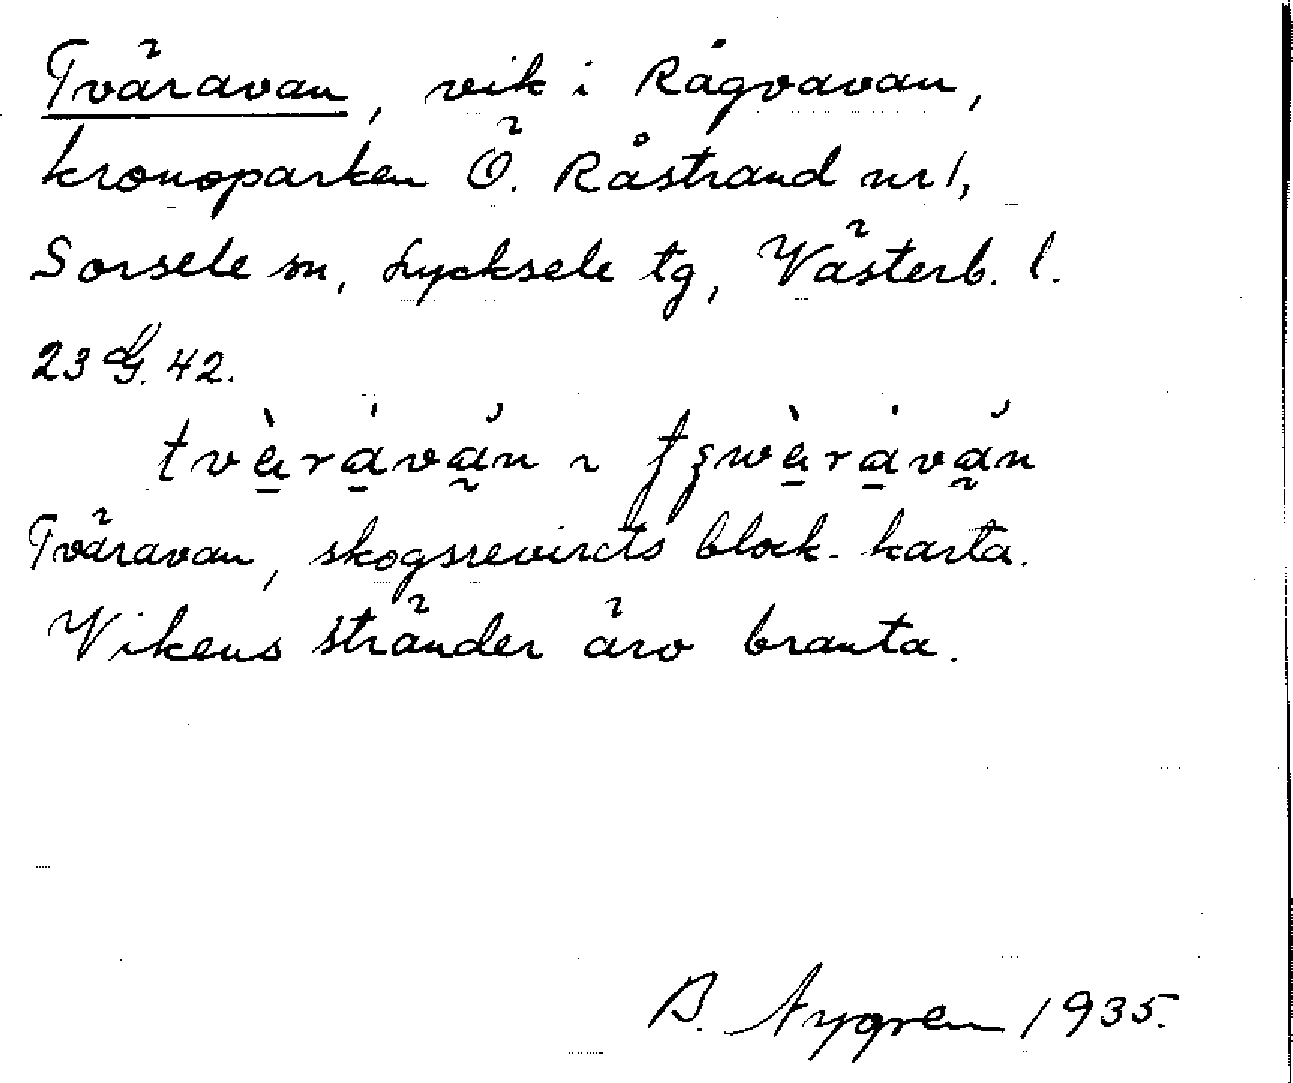 Tväravan, vik i Rågvavan,
kronoparken Ö. Råstrand nr 1,
Sorsele sn, Lycksele tg, Västerb. l.
23 G. 42.
Tväravan, skogsrevirets block-karta.
Vikens stränder äro branta.
B. Nygren 1935.